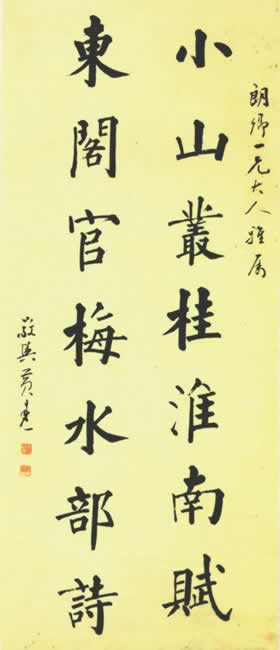 朗卿一兄大人雅属
小山叢桂淮南賦
東閣官梅水部詩